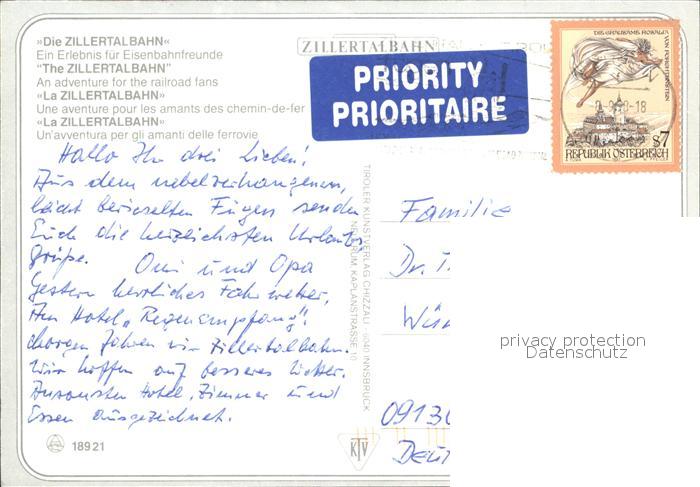 »Die ZILLERTALBAHN«
Ein Erlebnis für Eisenbahnfreunde
"The ZILLERTALBAHN"
An adventure for the railroad fans
»La ZILLERTALBAHN»
Une aventure pour les amants des chemin-de-fer
»La ZILLERTALBAHN»
Un'avventura per gli amanti delle ferrovie
ZILLERTALBAHN
PRIORITY
PRIORITAIRE
DIE GRAUSAME ROSALIA
VON FORCHTENSTEIN
-18
s7
REPUBLIK ÖSTERREICH
Hallo Ihr drei Lieben!
Aus dem nebelverhangenen,
leicht berieselten Fügen senden
Euch die herzlichsten Urlaubs
grüße. Omi und Opa
Gestern herrliches Fahrwetter,
Am Hotel „Regenempfang"!
Morgen fahren wir Zillertalbahn.
Wir hoffen auf besseres Wetter.
Ansonsten Hotel, Zimmer und
Essen ausgezeichnet.
TIROLER KUNSTVERLAG CHIZZALI · 6040 INNSBRUCK
NEURUM KAPLANSTRASSE 10
Familie
Dr. T.
Wün
privacy protection
Datenschutz
0913
Deut
18921
KTV